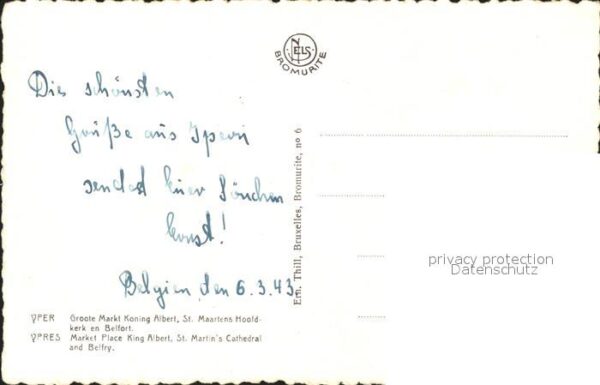 NELS
BROMURITE
Die schönsten
Grüße aus Ypern
sendet Euer Söhnchen
Ernst!
Belgien, den 6.3.43.
Ern. Thill, Bruxelles, Bromurite, nº 6
YPER Groote Markt Koning Albert, St. Maartens Hoofd-
kerk en Belfort.
YPRES Market Place King Albert, St. Martin's Cathedral
and Belfry.
privacy protection
Datenschutz